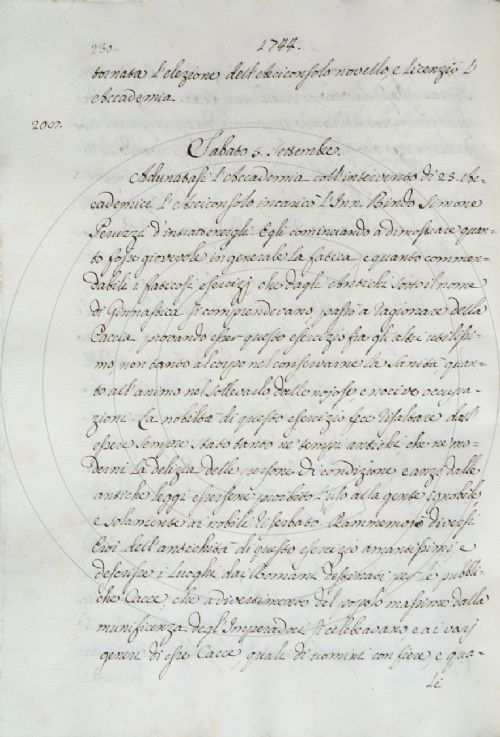 230.
1744.
tornata l'elezione dell'Arciconsolo novello, e licenziò l'
Accademia.
200.
Sabato 5. Settembre.
Adunatasi l'Accademia coll'intervento di 23. Ac-
cademici l'Arciconsolo incaricò l'Inn. Bindo Simone
Peruzzi d'intratenergli. Egli cominciando a dimostrare quan-
to fosse giovevole in generale la fatica, e quanto commen-
dabili i faticosi esercizj che dagli Antichi sotto il nome
di Ginnastica si comprendevano, passò a ragionare della
Caccia provando esser questo esercizio fra gli altri utilissi-
mo non tanto al corpo nel conservarne la sanità quan-
to all'animo nel sollevarlo dalle nojose e nocive occupa-
zioni. La nobiltà di questo esercizio fece risaltare dall'
essere sempre stato tanto ne' tempi antichi che ne' mo-
derni la delizia delle persone di condizione e anzi dalle
antiche leggi essersene proibito l'uso alla gente ignobile
e solamente ai nobili riserbato. Rammemorò diversi
Eroi dell'antichità di questo esercizio amantissimi e
descrisse i luoghi dai Romani destinati per le pubbli-
che Cacce, che a divertimento del popolo massime dalla
munificenza degl'Imperadori si celebravano e ai varj
generi di esse Cacce, quali di uomini con fiere, e qua-
li